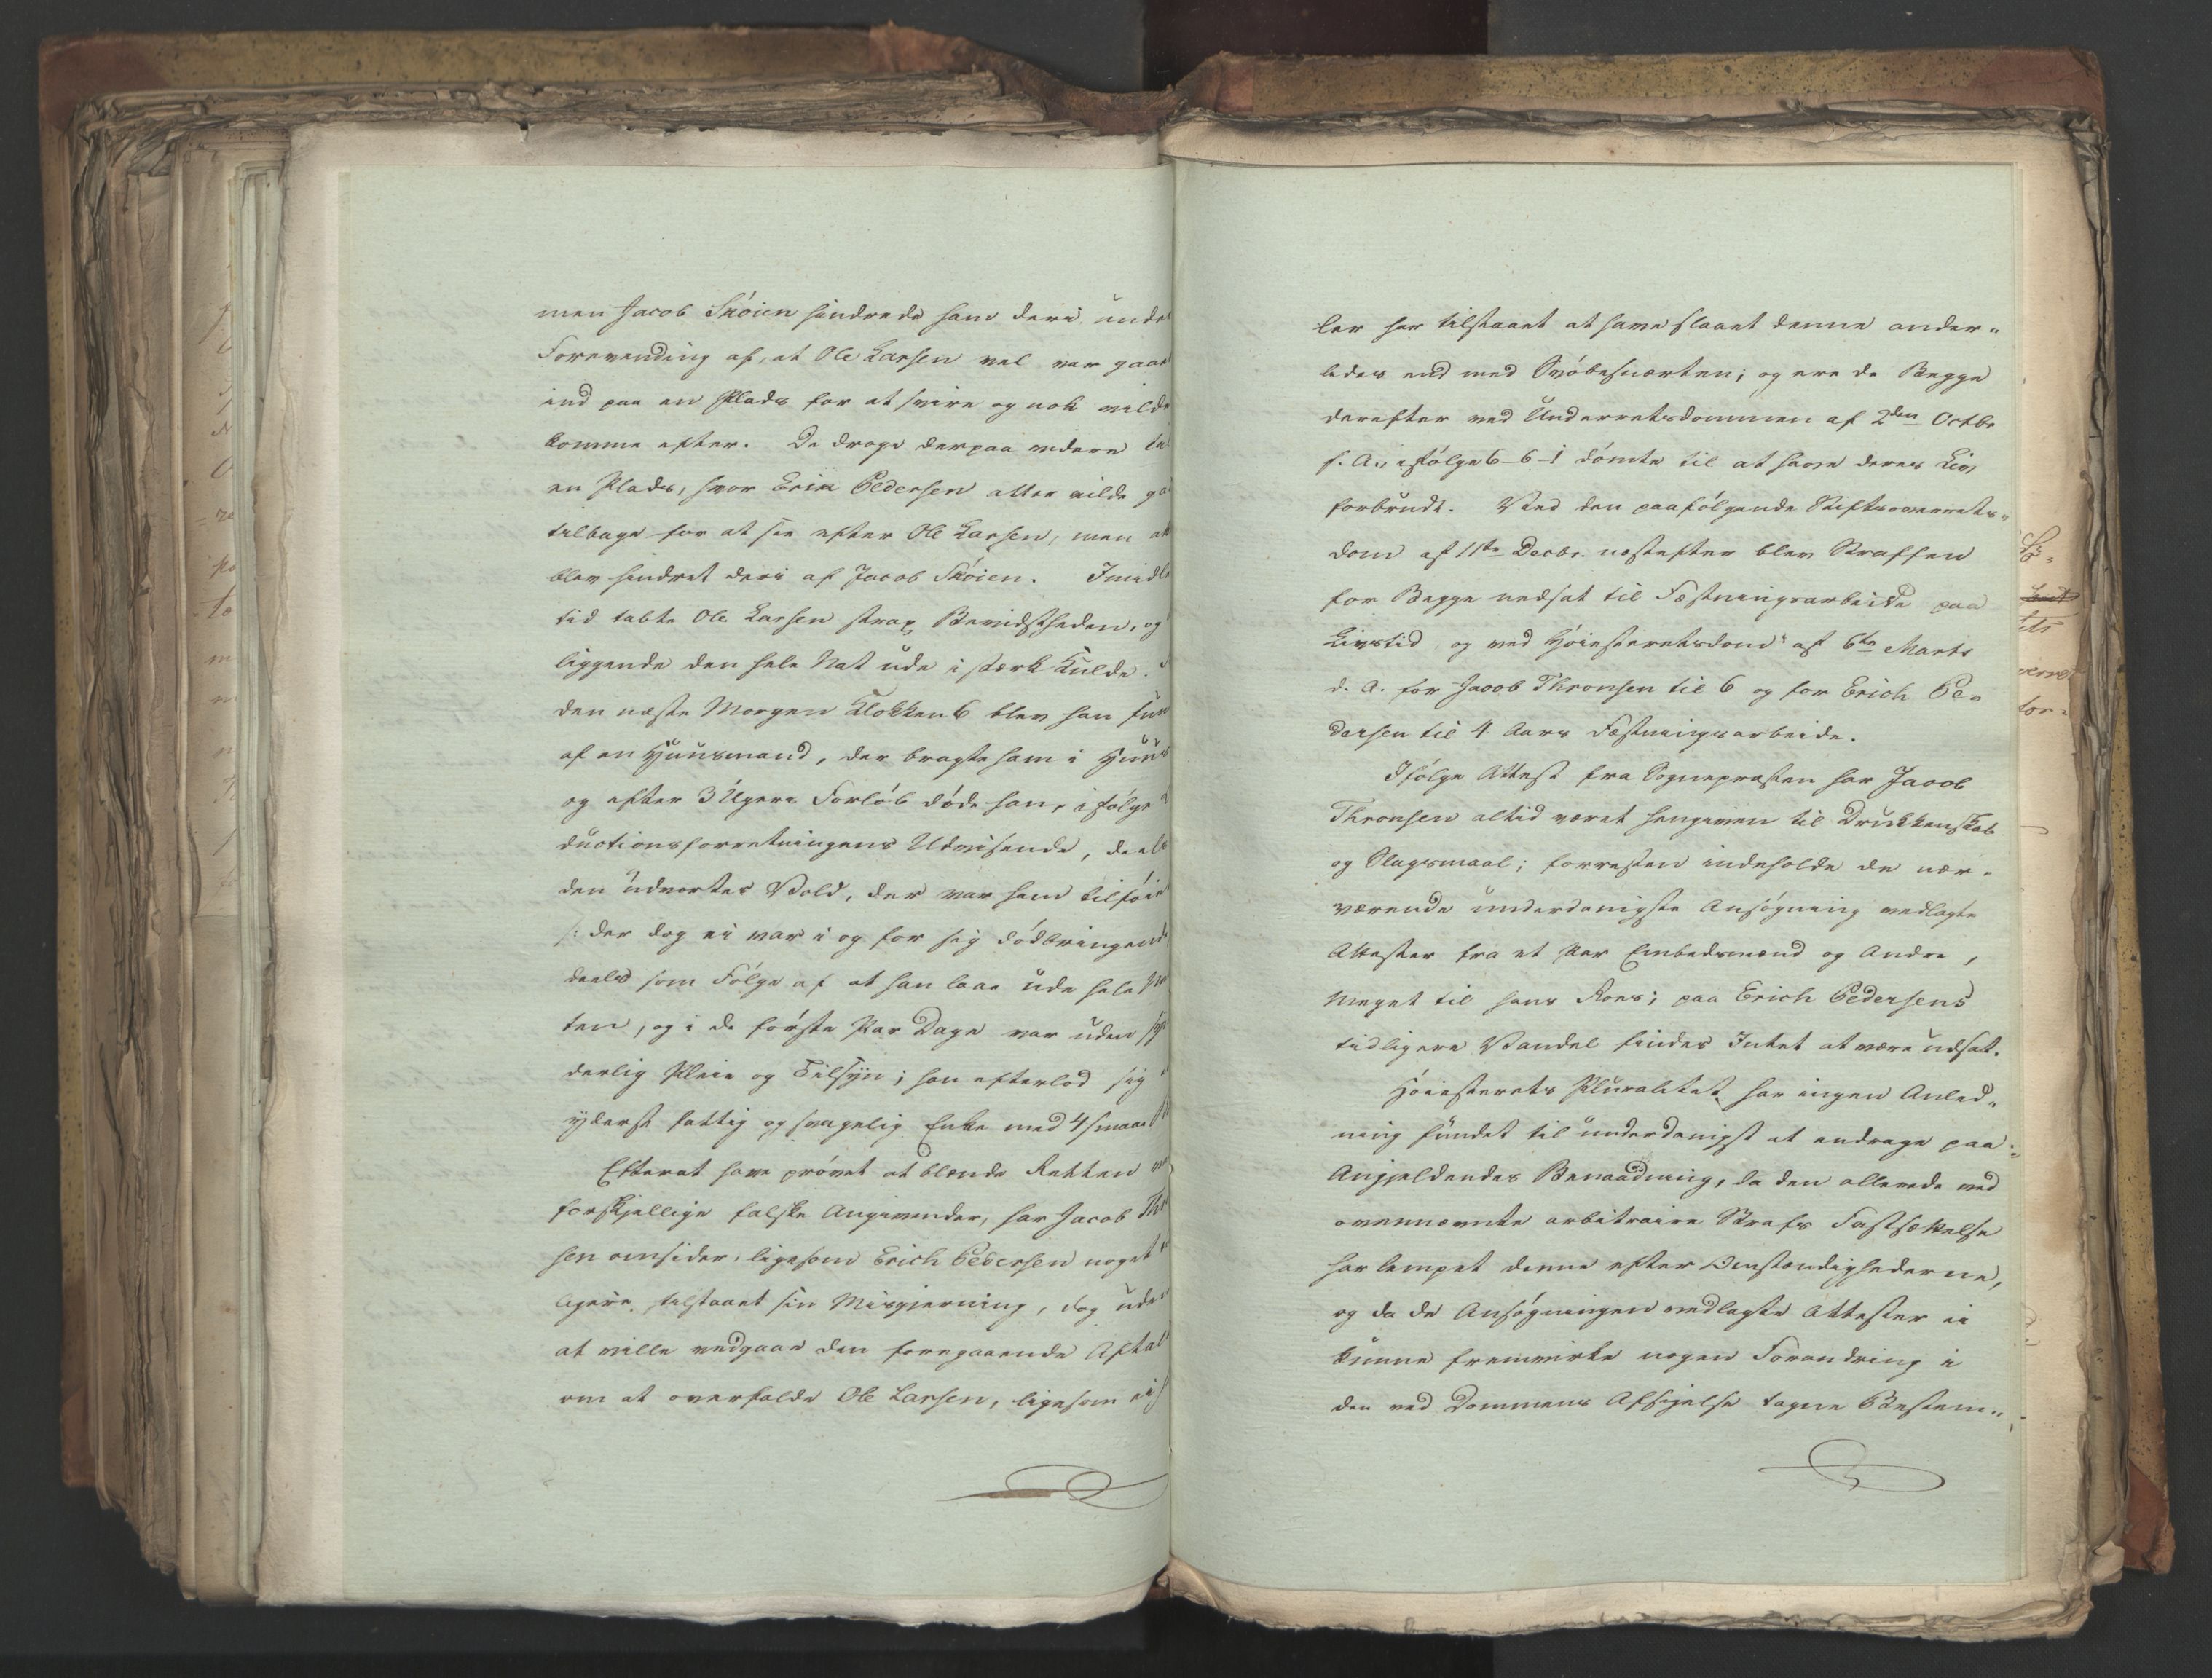 men Jacob Skóien hindrede ham deri unde
Forevending af, at Ole Larsen vel var gaae
ind paa en Plads for at svire og nok vilde
komme efter. De droge derpaa videre til
en Plads, hvor Erik Pedersen atter vilde ga
tilbage for at see efter Ole Larsen, men att
blev hindret deri af Jacob Skóien. Imidle
tid tabte Ole Larsen strax Bevidstheden, og
liggende den hele Nat ude i stærk Kulde.
den næste Morgen Klokken 6 blev han fun
af en Huusmand, der bragte ham i Huus
og efter 3 Ugers Forlób dóde han, i fólge
ductionsforretningens Udvisende, deels
den udvortes Vold, der var ham tilfóiet
/: der dog ei var i og for sig dódbringende
deels som Fólge af at han laae ude hele Na
ten, og i de fórste Par Dage var uden syn
derlig Pleie og Tilsyn; han efterlod sig
yderst fattig og svagelig Enke med 4 smaae
Efterat have próvet at blende Retten ved
forskjellige falske Angivender, har Jacob Thr
sen omsider, ligesom Erich Pedersen noget
ligere, tilstaaet sin Misgjerning, dog uden
at ville vedgaae den foregaaende Aftal
om at overfalde Ole Larsen, ligesom ei
ler har tilstaaet at have slaaet denne ander-
ledes end med Svóbesnerten; og ere de Begge
derefter ved Underretsdommen af 2den Octbr
f. A., ifólge 6-6-1 dómte til at have deres Liv
forbrudt. Ved den paafólgende Stiftsoverrets-
dom af 11te Decbr. næstefter blev Straffen
for Begge nedsat til Fæstningsarbeide paa
Livstid og ved Hóiesteretsdom af 6te Marts
d. A. for Jacob Thronsen til 6 og for Erich Pe-
dersen til 4 Aars Fæstningsarbeide.
Ifólge Attest fra Sognepræsten har Jacob
Thronsen altid været hengiven til Drukkenskab
og Slagsmaal; forresten indeholde de nær-
værende underdanigste Ansógning vedlagte
Attester fra et Par Embedsmænd og Andre,
Meget til hans Roes; paa Erich Pedersens
tidligere Vandel findes Intet at være udsat.
Hóiesterets Pluralitet har ingen Anled-
ning fundet til underdanigst at andrage paa
Angjeldendes Benaadning, da den allerede ved
ovennævnte arbitraire Strafs Fastsættelse
har lempet denne efter Omstændighederne,
og da de Ansógningen vedlagte Attester ei
kunne fremvirke nogen Forandring i
den ved Dommens Afsigelse tagne Bestem-